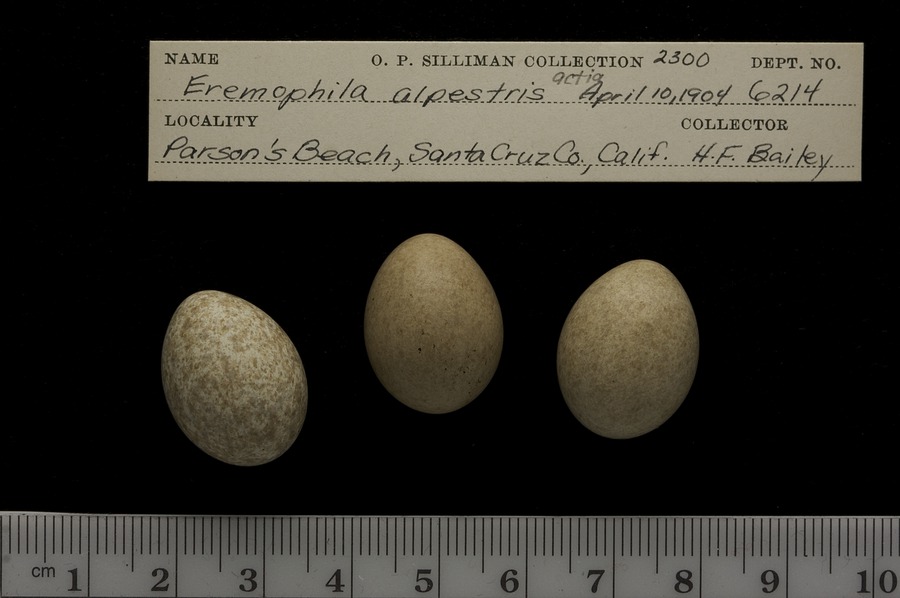 NAME O. P. SILLIMAN COLLECTION 2300 DEPT. NO.
Eremophila alpestris actia April 10, 1904 6214
LOCALITY COLLECTOR
Parson's Beach, Santa Cruz Co., Calif. H.F. Bailey
cm 1 2 3 4 5 6 7 8 9 10